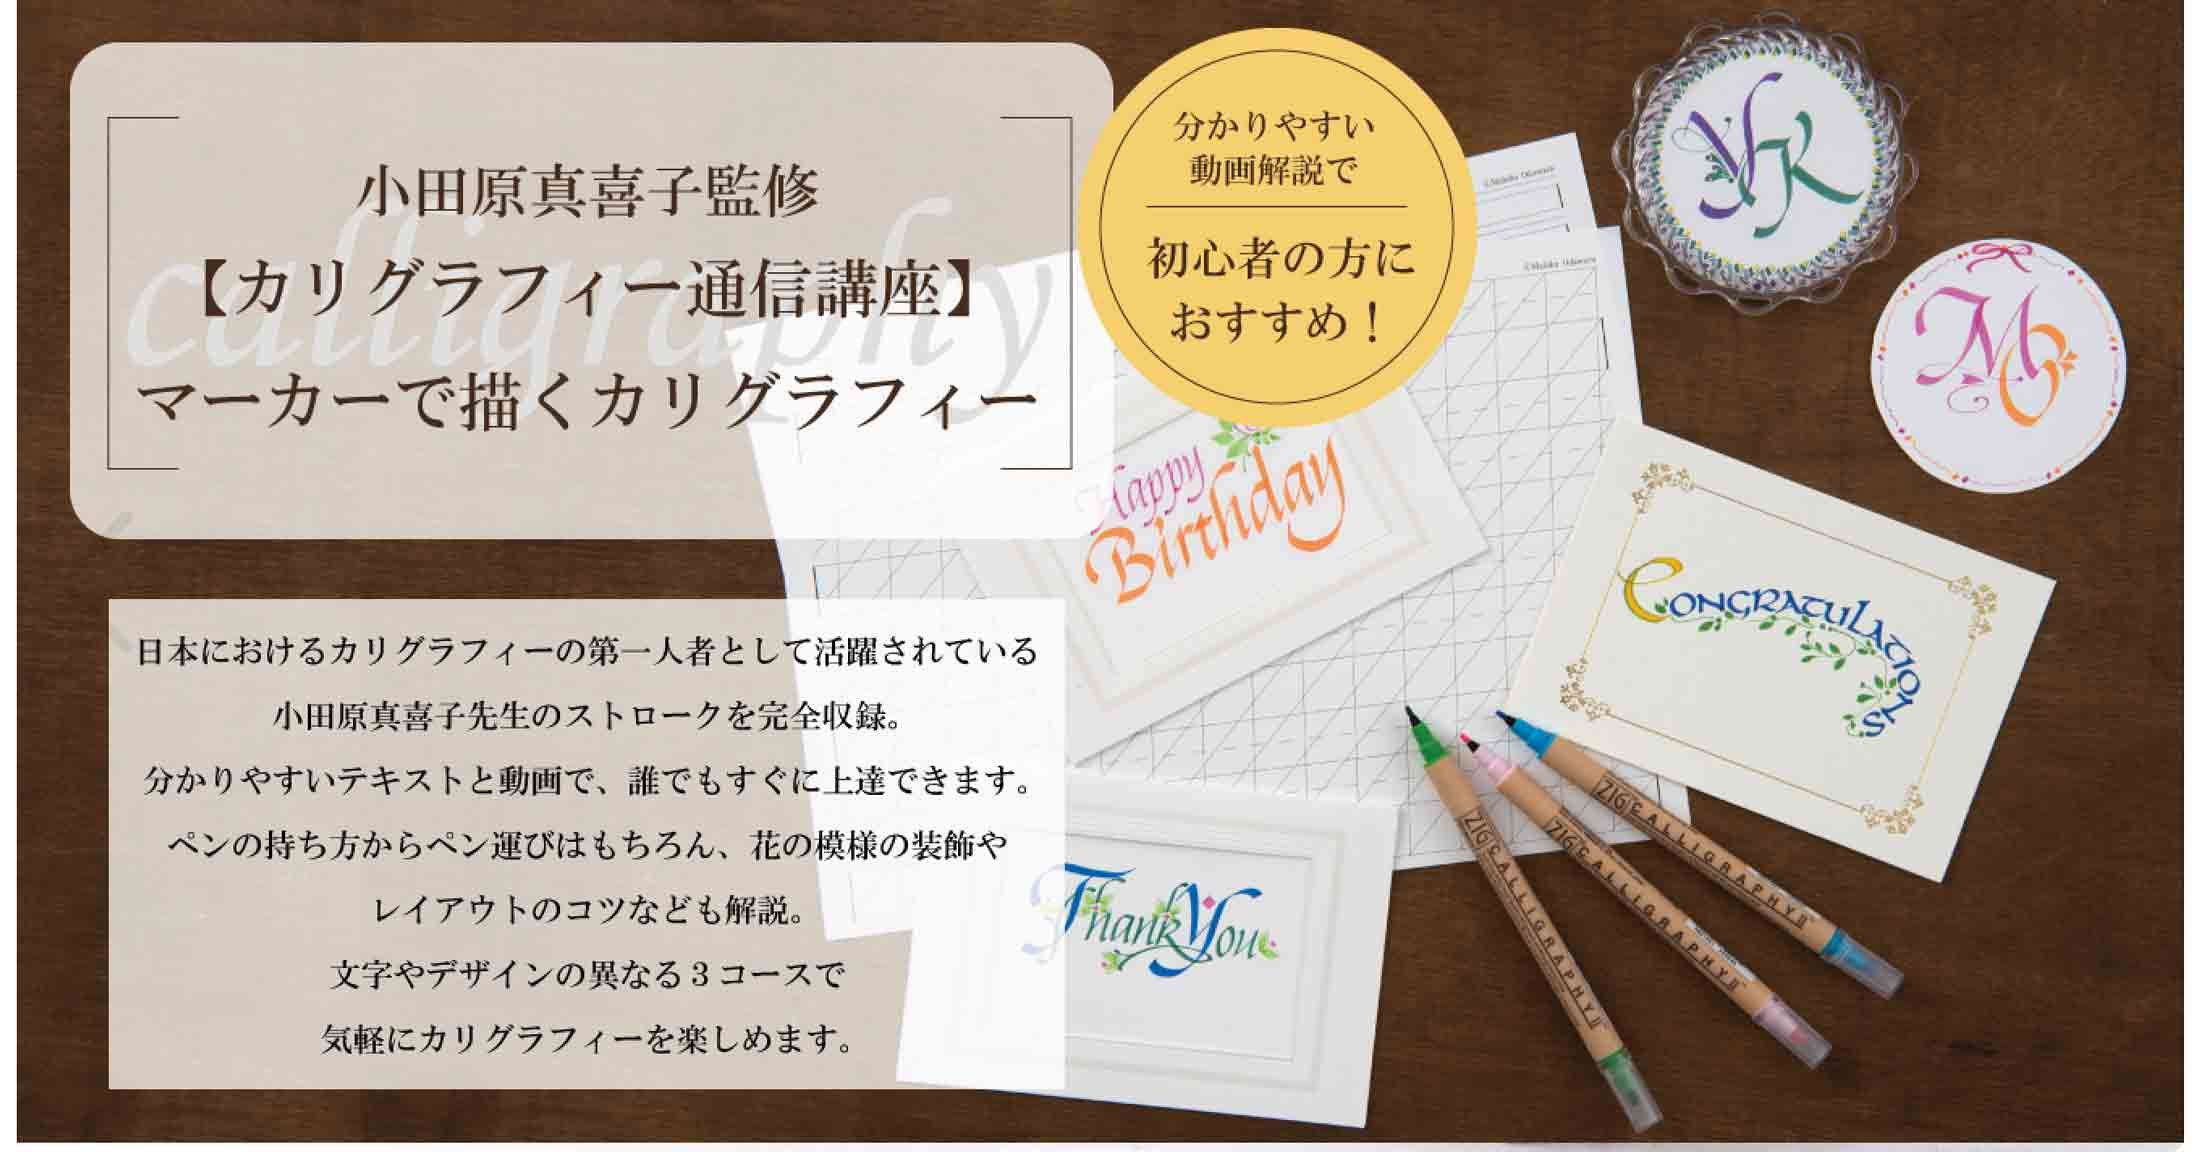 小田原真喜子監修
calligraphy
【カリグラフィー通信講座】
マーカーで描くカリグラフィー
分かりやすい
動画解説で
初心者の方に
おすすめ！
日本におけるカリグラフィーの第一人者として活躍されている
小田原真喜子先生のストロークを完全収録。
分かりやすいテキストと動画で、誰でもすぐに上達できます。
ペンの持ち方からペン運びはもちろん、花の模様の装飾や
レイアウトのコツなども解説。
文字やデザインの異なる３コースで
気軽にカリグラフィーを楽しめます。
Happy
Birthday
CONGRATULATIONS
Thank You
ZIG CALLIGRAPHY II
ZIG CALLIGRAPHY II
ZIG CALLIGRAPHY II
©Makiko Odawara
©Makiko Odawara